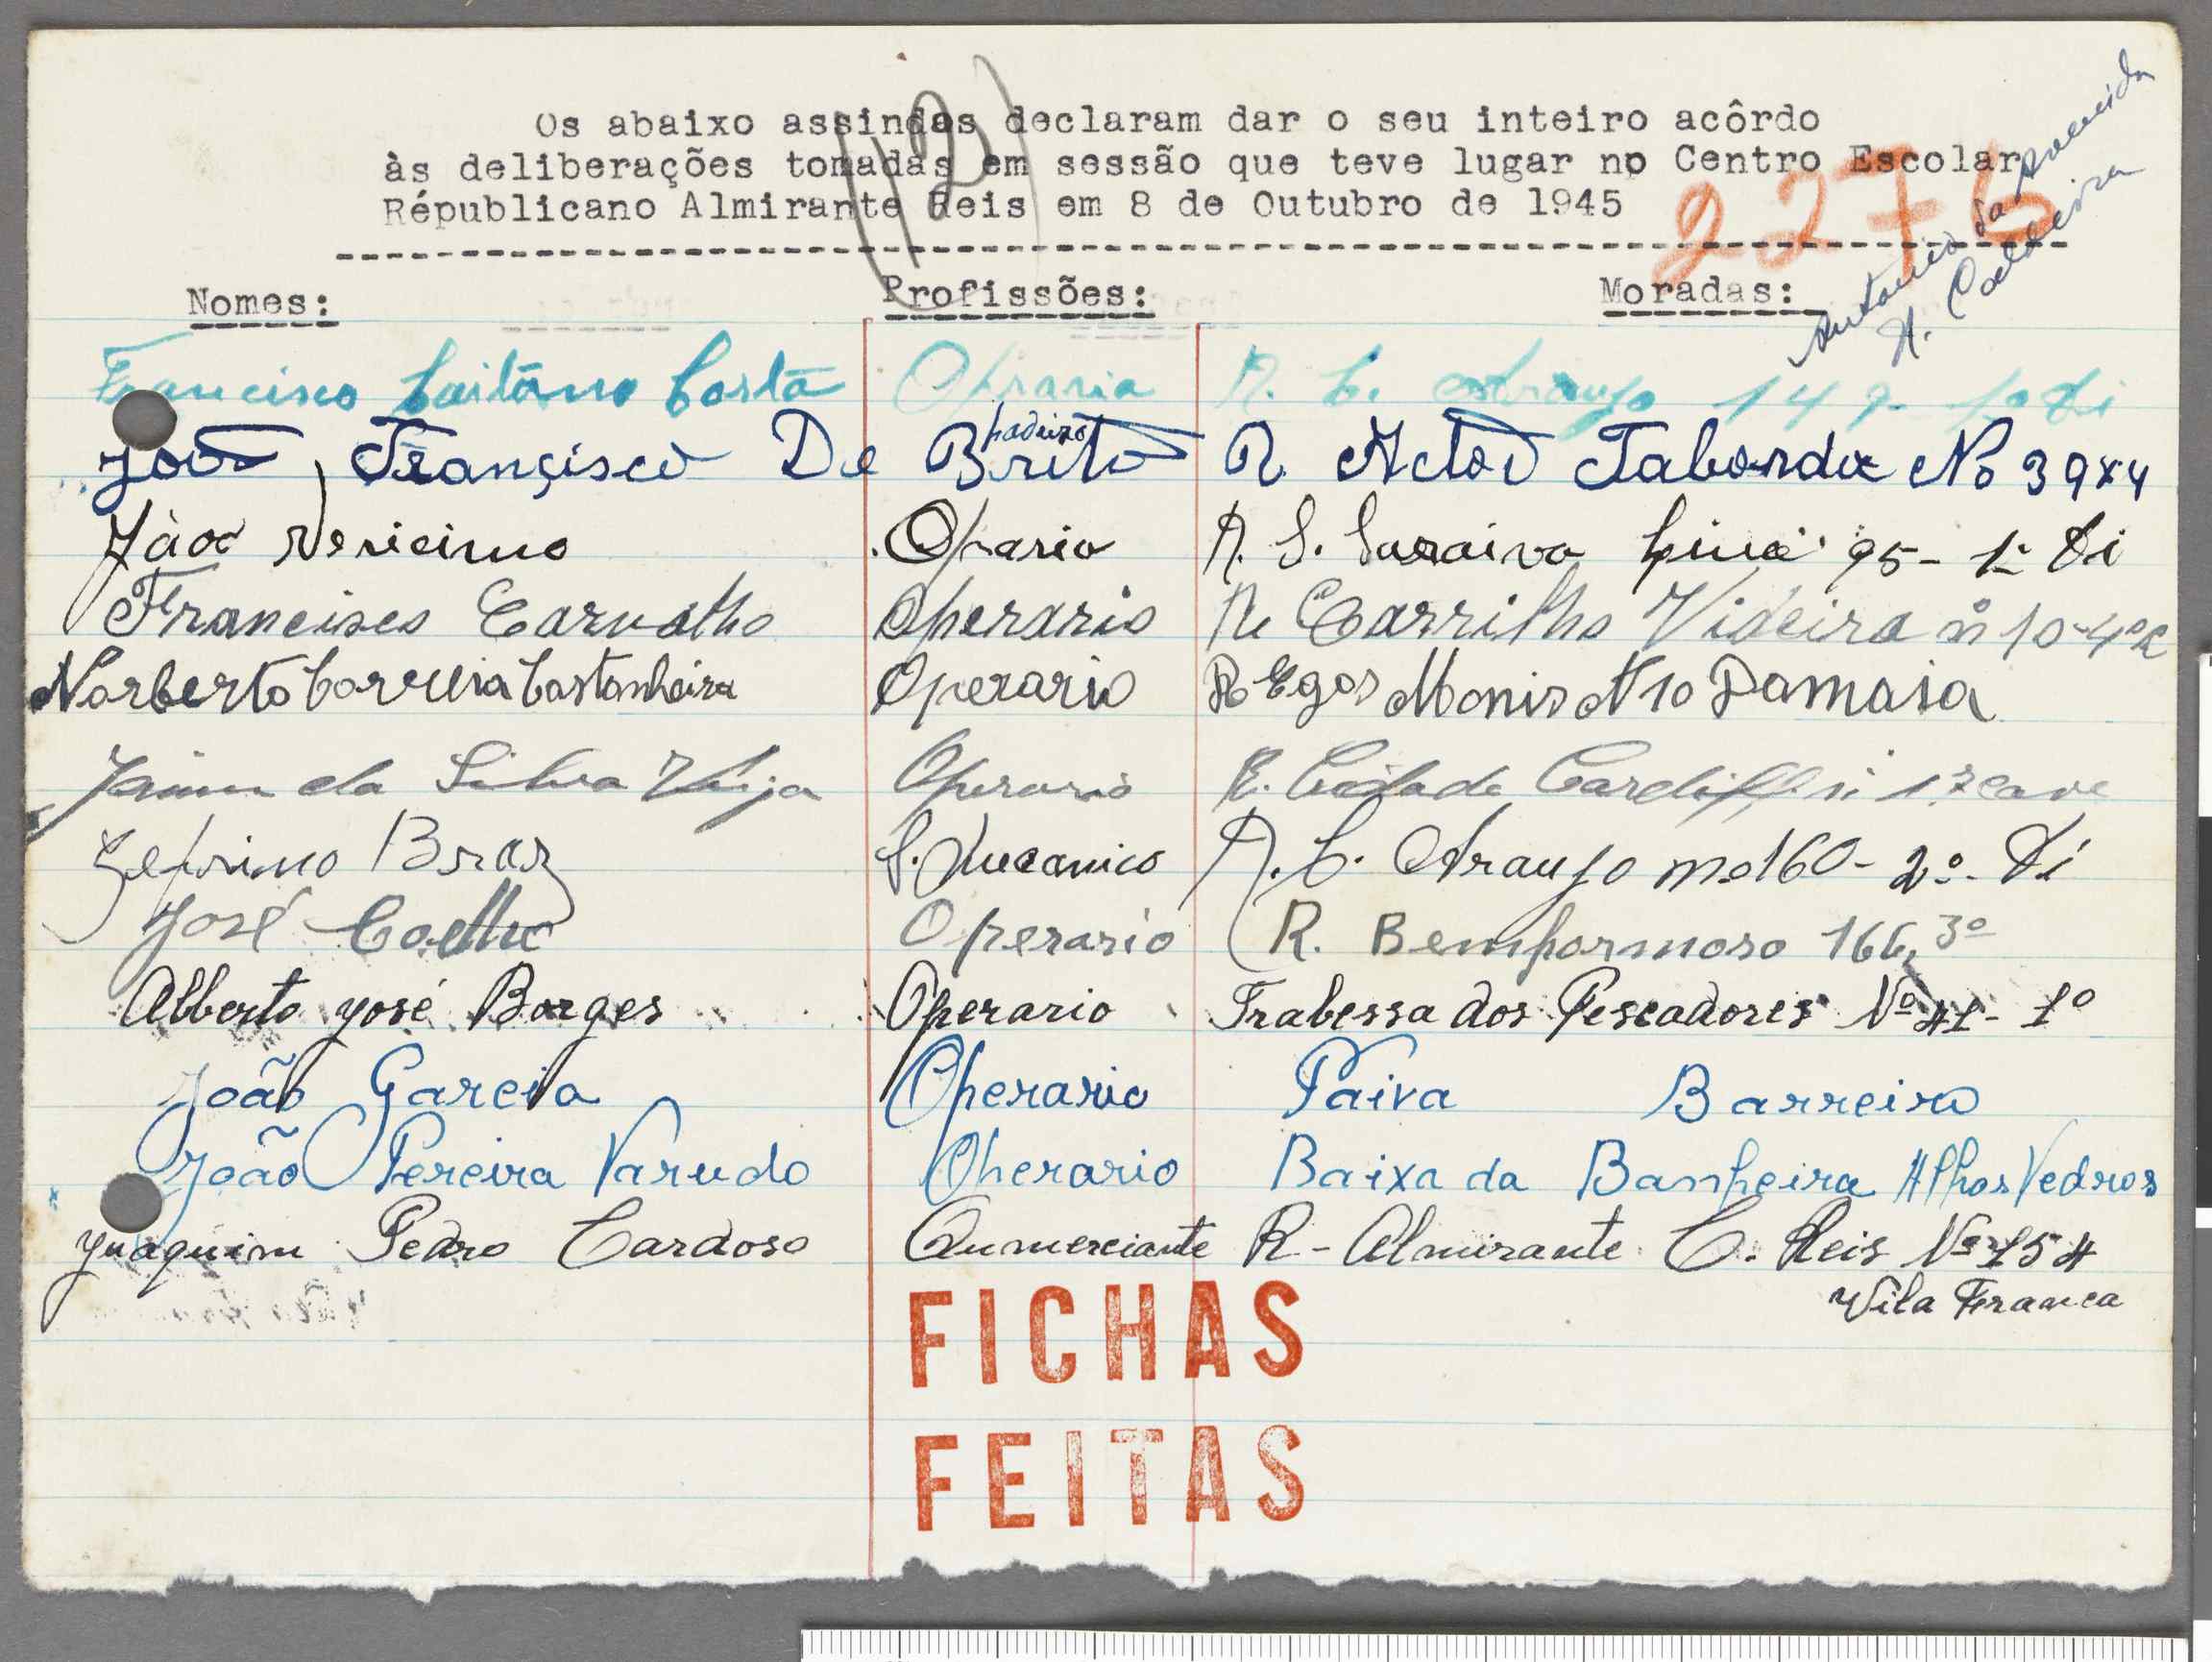 Os abaixo assindos declaram dar o seu inteiro acôrdo
às deliberações tomadas em sessão que teve lugar no Centro Escolar
Républicano Almirante Reis em 8 de Outubro de 1945
(12)
2276
Antonio da Almeida
H. Caldeira
Nomes: Profissões: Moradas:
Francisco Caitano Costa Opraria R. C. Araujo 149-1º Di
João Françisco De Brito padeiro R. Actor Taborda No 39 x 4
Jàoo Opario R. S. Saraiva Lima 95-1º Di
Francisco Carvalho Operario R. Carrilho Videira nº 10-4º
Norberto Correia Castanheira Operario R. Egas Monis N 10 Damaia
da Silva Operario R. Cidade Cardiff nº cave
Zefrino Braz S. Mecanico R. C. Araujo no 160-2º-Di
José Coelho Operario R. Bemformoso 166, 3º
Alberto José Borges Operario Trabessa dos Pescadores Nº 41-1º
João Garcia Operario Paiva Barreiro
João Pereira Varudo Operario Baixa da Banheira Alhos Vedros
Juaquim Pedro Cardoso Qumerciante R-Almirante C. Reis Nº 154
Vila Franca
FICHAS
FEITAS